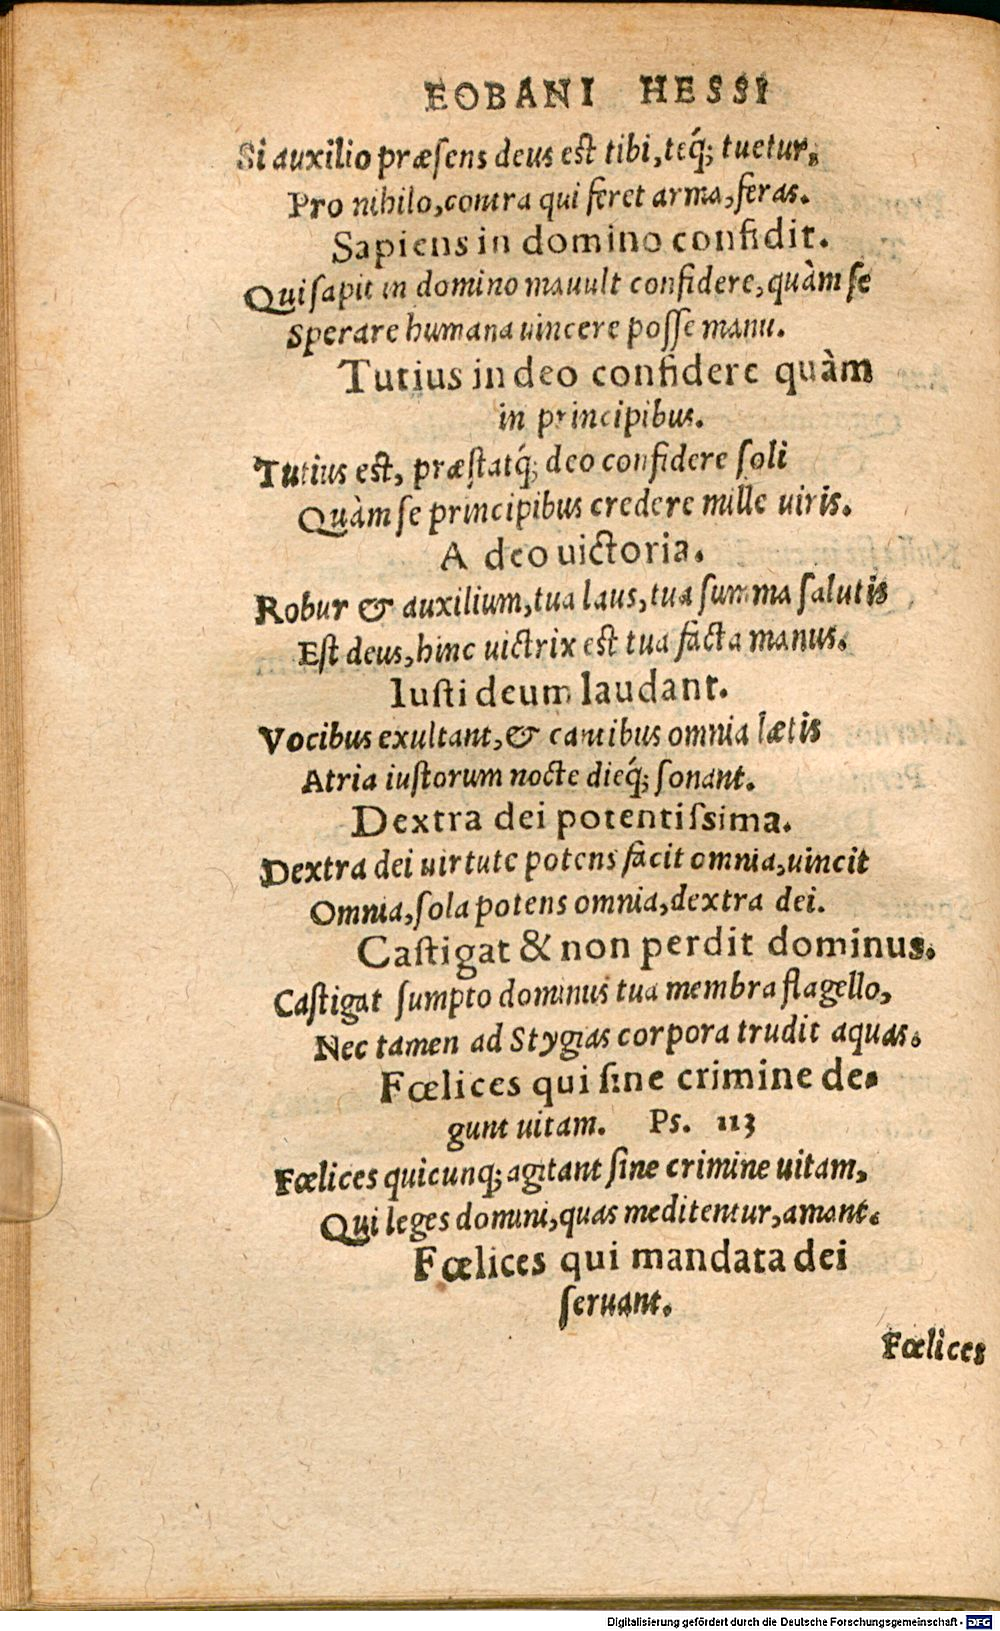 EOBANI HESSI
Si auxilio præſens deus est tibi, teq́; tuetur,
Pro nihilo, contra qui feret arma, feras.
Sapiens in domino confidit.
Qui ſapit in domino mauult confidere, quàm ſe
Sperare humana uincere poſſe manu.
Tutius in deo confidere quàm
in principibus.
Tutius est, præſtatq́; deo confidere ſoli
Quàm ſe principibus credere mille uiris.
A deo uictoria.
Robur & auxilium, tua laus, tua ſumma ſalutis
Eſt deus, hinc uictrix est tua facta manus.
Iuſti deum laudant.
Vocibus exultant, & cantibus omnia lætis
Atria iuſtorum nocte dieq́; ſonant.
Dextra dei potentiſsima.
Dextra dei uirtute potens facit omnia, uincit
Omnia, ſola potens omnia, dextra dei.
Caſtigat & non perdit dominus.
Caſtigat ſumpto dominus tua membra flagello,
Nec tamen ad Stygias corpora trudit aquas.
Fœlices qui ſine crimine de-
gunt uitam. Ps. 113
Fœlices quicunq; agitant ſine crimine uitam,
Qui leges domini, quas meditentur, amant.
Fœlices qui mandata dei
ſeruant.
Fœlices
Digitalisierung gefördert durch die Deutsche Forschungsgemeinschaft - DFG